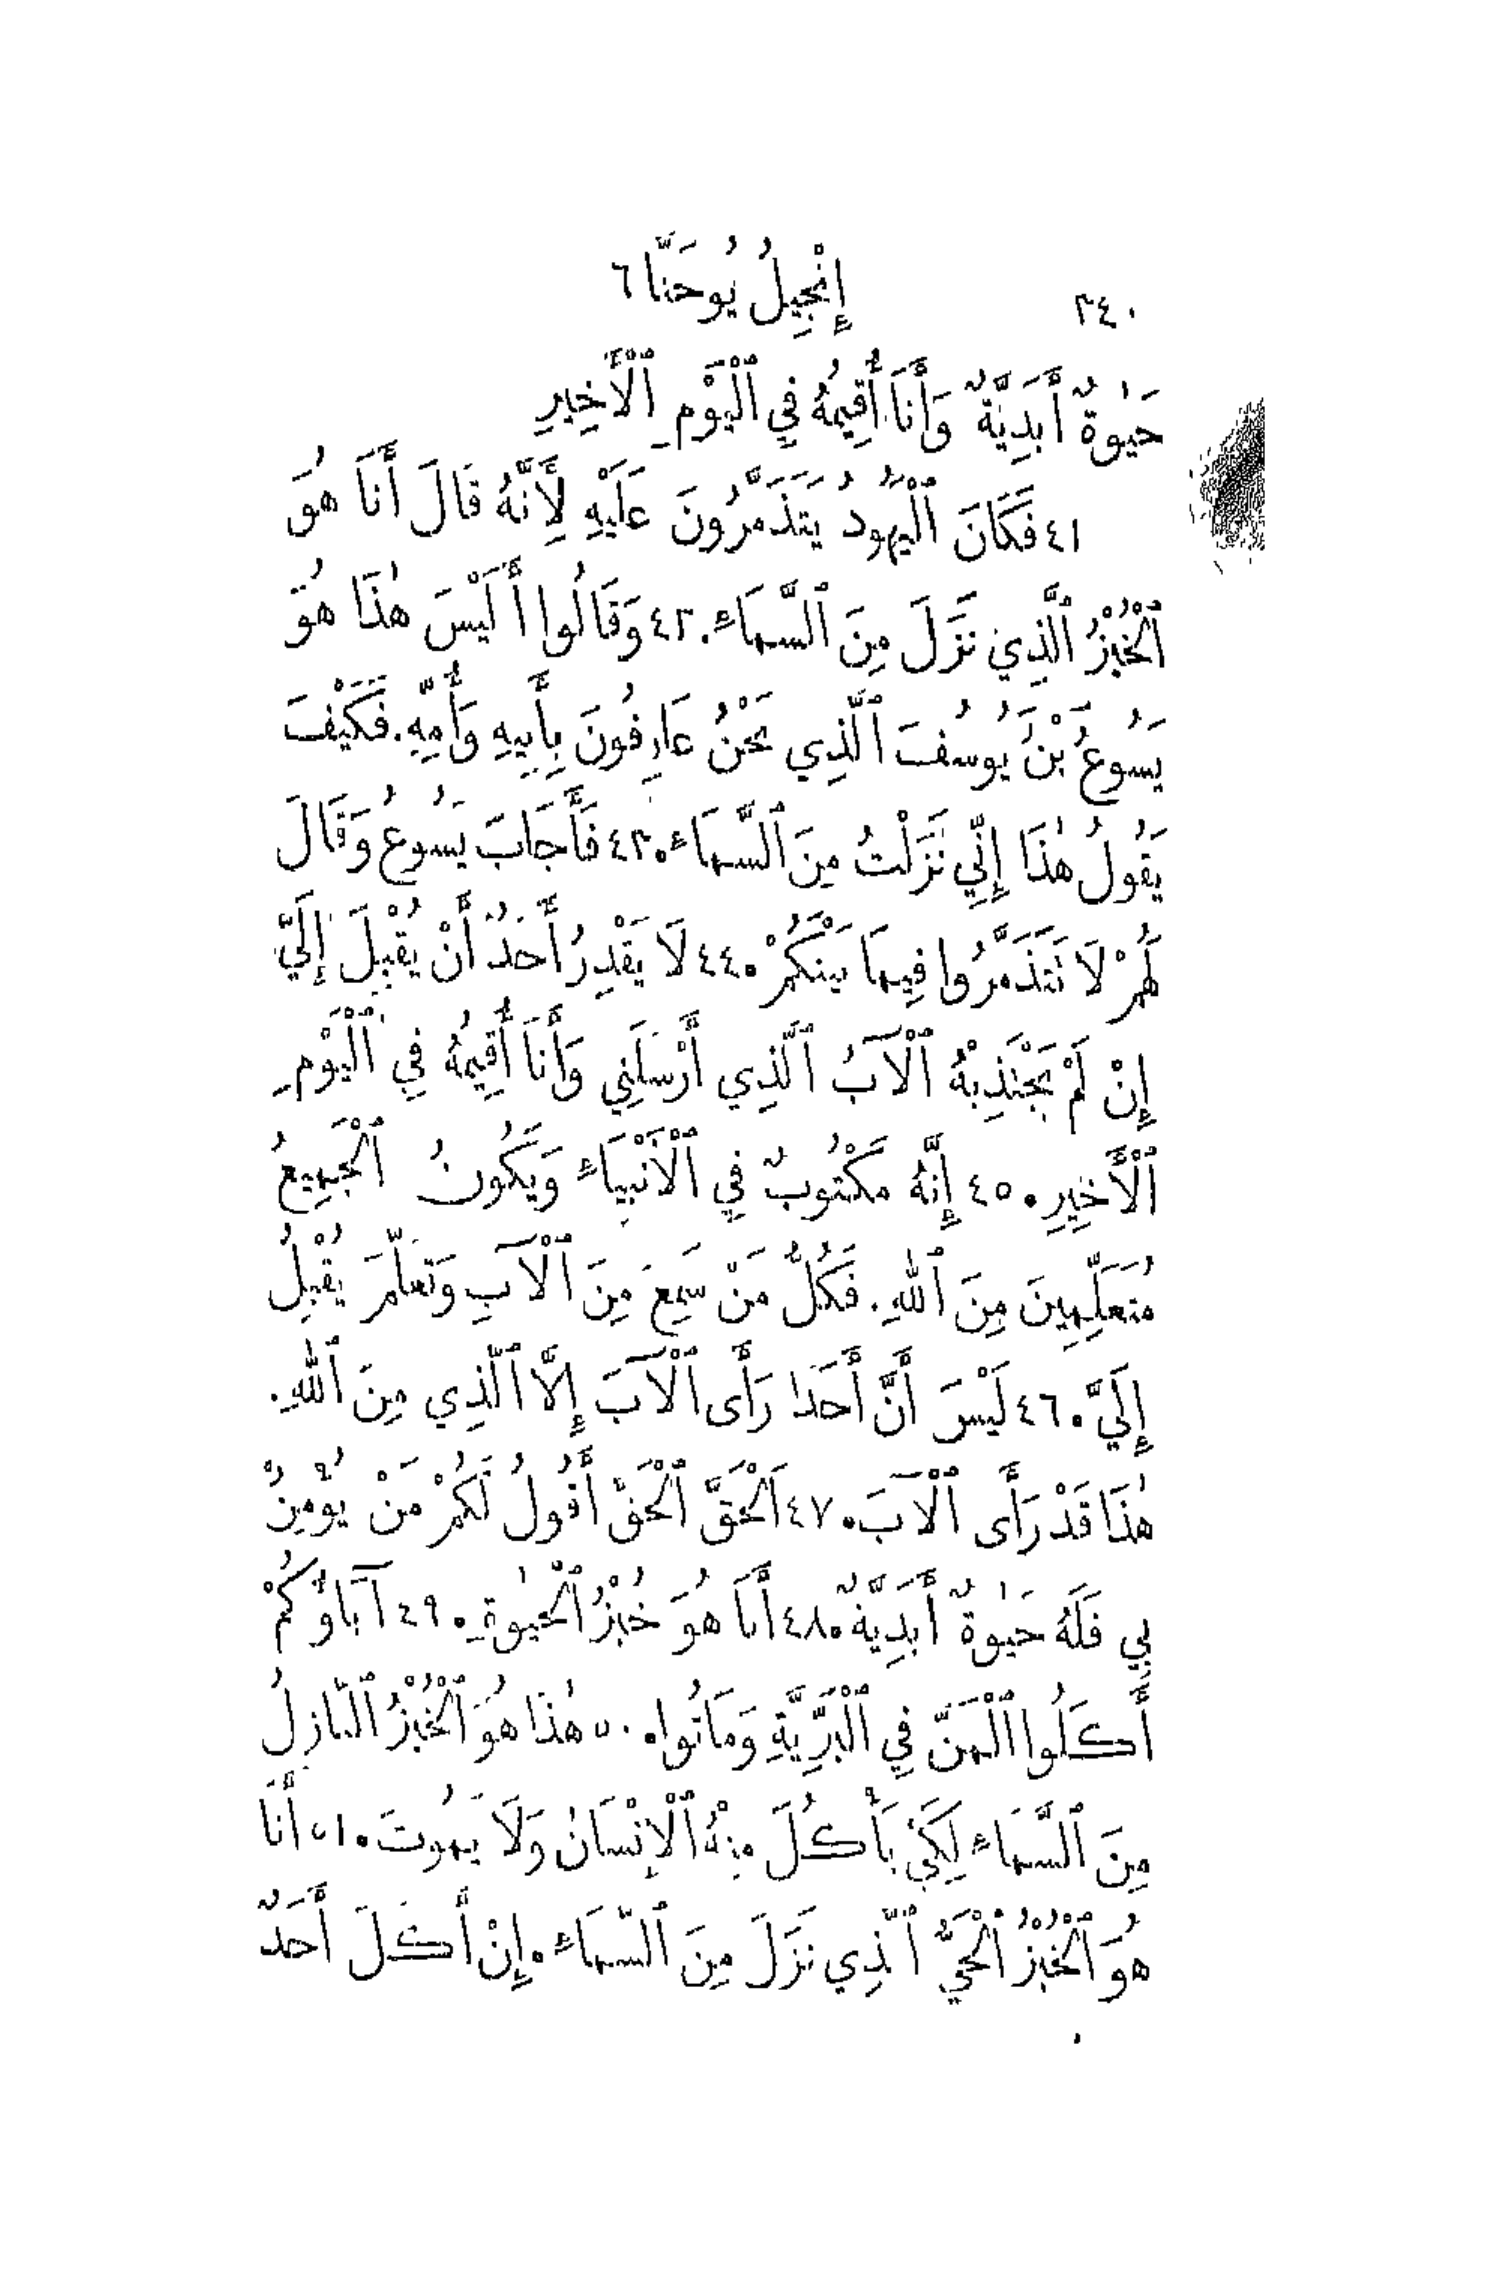 ٣٤٠ إِنْجِيلُ يُوحَنَّا ٦
حَيٰوةٌ أَبَدِيَّةٌ وَأَنَا أُقِيمُهُ فِي ٱلْيَوْمِ ٱلْأَخِيرِ
٤١ فَكَانَ ٱلْيَهُودُ يَتَذَمَّرُونَ عَلَيْهِ لِأَنَّهُ قَالَ أَنَا هُوَ
ٱلْخُبْزُ ٱلَّذِي نَزَلَ مِنَ ٱلسَّمَاءِ. ٤٢ وَقَالُوا أَلَيْسَ هٰذَا هُوَ
يَسُوعُ بْنُ يُوسُفَ ٱلَّذِي نَحْنُ عَارِفُونَ بِأَبِيهِ وَأُمِّهِ. فَكَيْفَ
يَقُولُ هٰذَا إِنِّي نَزَلْتُ مِنَ ٱلسَّمَاءِ. ٤٣ فَأَجَابَ يَسُوعُ وَقَالَ
لَهُمْ لَا تَتَذَمَّرُوا فِيمَا بَيْنَكُمْ. ٤٤ لَا يَقْدِرُ أَحَدٌ أَنْ يُقْبِلَ إِلَيَّ
إِنْ لَمْ يَجْتَذِبْهُ ٱلْآبُ ٱلَّذِي أَرْسَلَنِي وَأَنَا أُقِيمُهُ فِي ٱلْيَوْمِ
ٱلْأَخِيرِ. ٤٥ إِنَّهُ مَكْتُوبٌ فِي ٱلْأَنْبِيَاءِ وَيَكُونُ ٱلْجَمِيعُ
مُتَعَلِّمِينَ مِنَ ٱللهِ. فَكُلُّ مَنْ سَمِعَ مِنَ ٱلْآبِ وَتَعَلَّمَ يُقْبِلُ
إِلَيَّ. ٤٦ لَيْسَ أَنَّ أَحَدًا رَأَى ٱلْآبَ إِلَّا ٱلَّذِي مِنَ ٱللهِ.
هٰذَا قَدْ رَأَى ٱلْآبَ. ٤٧ اَلْحَقَّ ٱلْحَقَّ أَقُولُ لَكُمْ مَنْ يُؤْمِنْ
بِي فَلَهُ حَيٰوةٌ أَبَدِيَّةٌ. ٤٨ أَنَا هُوَ خُبْزُ ٱلْحَيٰوةِ. ٤٩ آبَاؤُكُمْ
أَكَلُوا ٱلْمَنَّ فِي ٱلْبَرِّيَّةِ وَمَاتُوا. ٥٠ هٰذَا هُوَ ٱلْخُبْزُ ٱلنَّازِلُ
مِنَ ٱلسَّمَاءِ لِكَيْ يَأْكُلَ مِنْهُ ٱلْإِنْسَانُ وَلَا يَمُوتَ. ٥١ أَنَا
هُوَ ٱلْخُبْزُ ٱلْحَيُّ ٱلَّذِي نَزَلَ مِنَ ٱلسَّمَاءِ. إِنْ أَكَلَ أَحَدٌ